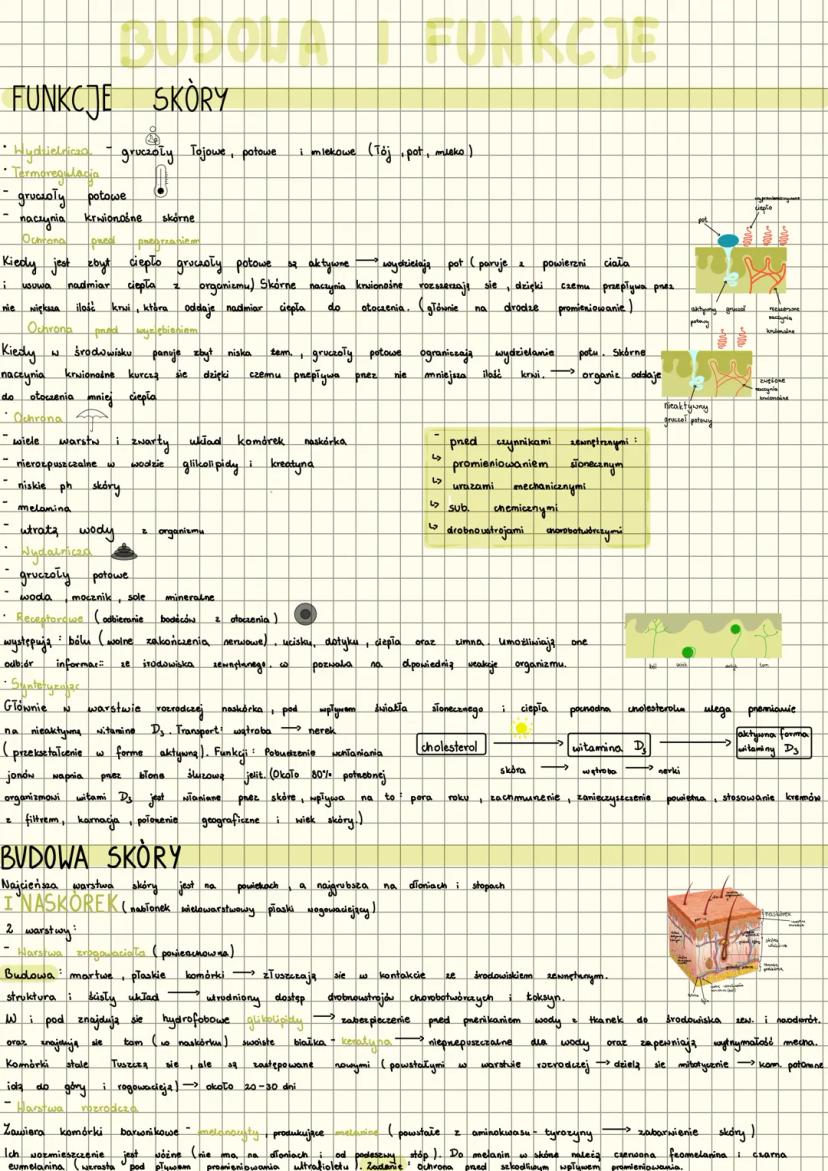 BUDOWA I FUNKCJE
FUNKCJE SKÒRY
· Wydzielnicza - gruczoły łojowe, potowe i mlekowe (łój, pot, mleko)
· Termoregulacja
- gruczoły potowe
- naczynia krwionośne skórne
Ochrona pned pnegrzaniem
Kiedy jest zbyt ciepło gruczoły potowe są aktywne → wydzielają pot (paruje z powierzni ciała
i usuwa nadmiar ciepła z organizmu) Skórne naczynia krwionośne rozszerzają się, dzięki czemu przepływa pnez
nie większa ilość krwi, która oddaje nadmiar ciepła do otoczenia. (głównie na drodze promieniowanie)
pot
ciepło
aktywny gruczoł potowy
rozszerzone naczynia krwionośne
Ochrona pned wyziębieniem
Kiedy w środowisku panuje zbyt niska tem., gruczoły potowe ograniczają wydzielanie potu. Skórne
naczynia krwionośne kurczą sie dzięki czemu pnepływa pnez nie mniejsza ilość krwi. → organiz oddaje
do otoczenia mniej ciepła
zwężone naczynia krwionośne
nieaktywny gruczoł potowy
· Ochrona
- wiele warstw i zwarty układ komórek naskórka
- nierozpuszczalne w wodzie glikolipidy i kreatyna
- niskie ph skóry
- melanina
- utratą wody z organizmu
- pned czynnikami zewnętrznymi:
↳ promieniowaniem słonecznym
↳ urazami mechanicznymi
↳ sub. chemicznymi
↳ drobnoustrojami chorobotwórczymi
· Wydalnicza
- gruczoły potowe
- woda, mocznik, sole mineralne
· Receptorowe (odbieranie bodźców z otoczenia)
występują: bólu (wolne zakończenia nerwowe), ucisku, dotyku, ciepła oraz zimna. Umożliwiają one
odbiór informacji ze środowiska zewnętznego. co pozwala na dpowiednią reakcje organizmu.
ból ucisk dotyk tem.
· Syntetyzując
Głównie w warstwie rozrodczej naskórka, pod wpływem światła słonecznego i ciepła pochodna cholesterolu ulega pnemianie
na nieaktywną witamine D₃. Transport: wątroba → nerek
(przekształcenie w forme aktywną). Funkcji: Pobudzenie wchłaniania
jonów wapnia pnez błone śluzową jelit. (Około 80% potnebnej
organizmowi witami D₃ jest właniane pnez skóre, wpływa na to: pora roku, zachmurzenie, zanieczyszczenie powietna, stosowanie kremów
z filtrem, karnacja, położenie geograficzne i wiek skóry.)
cholesterol → witamina D₃ → aktywna forma witaminy D₃
skóra → wątroba → nerki
BUDOWA SKÓRY
Najcieńsza warstwa skóry jest na powiekach, a najgrubsza na dłoniach i stopach
I NASKÓREK (nabłonek wielowarstwowy płaski rogowaciejący)
2 warstwy:
- Warstwa zrogowaciała (powierzchowna)
Budowa: martwe, płaskie komórki → złuszczają sie w kontakcie ze środowiskiem zewnętrznym.
struktura i ścisły układ → utrudniony dostęp drobnoustrojów chorobotwórczych i toksyn.
W i pod znajdują sie hydrofobowe glikolipidy → zabezpieczenie pned pnenikaniem wody z tkanek do środowiska zew. i naodwrót.
oraz znajdują sie tam (w naskórku) swoiste białka - keratyna → niepnepuszczalne dla wody oraz zapewniają wytnymałość mecha.
Komórki stale Tuszczą sie, ale są zastępowane nowymi (powstałymi w warstwie rozrodczej → dzielą się mitotycznie → kom. potomne
idą do góry i rogowacieją) → około 20-30 dni
naskórek
- Warstwa rozrodcza
Zawiera komórki barwnikowe - melanocyty, produkujące melanine (powstałe z aminokwasu - tyrozyny → zabarwienie skóry)
Ich rozmieszczenie jest różne (nie ma na dłoniach i od podeszwy stóp). Do melanin w skórze należą czerwona feomelanina i czarna
eumelanina (wzrasta pod pływem promieniowania ultrafioletu). Zadanie: ochrona pned szkodliwym wpływem promieniowania.